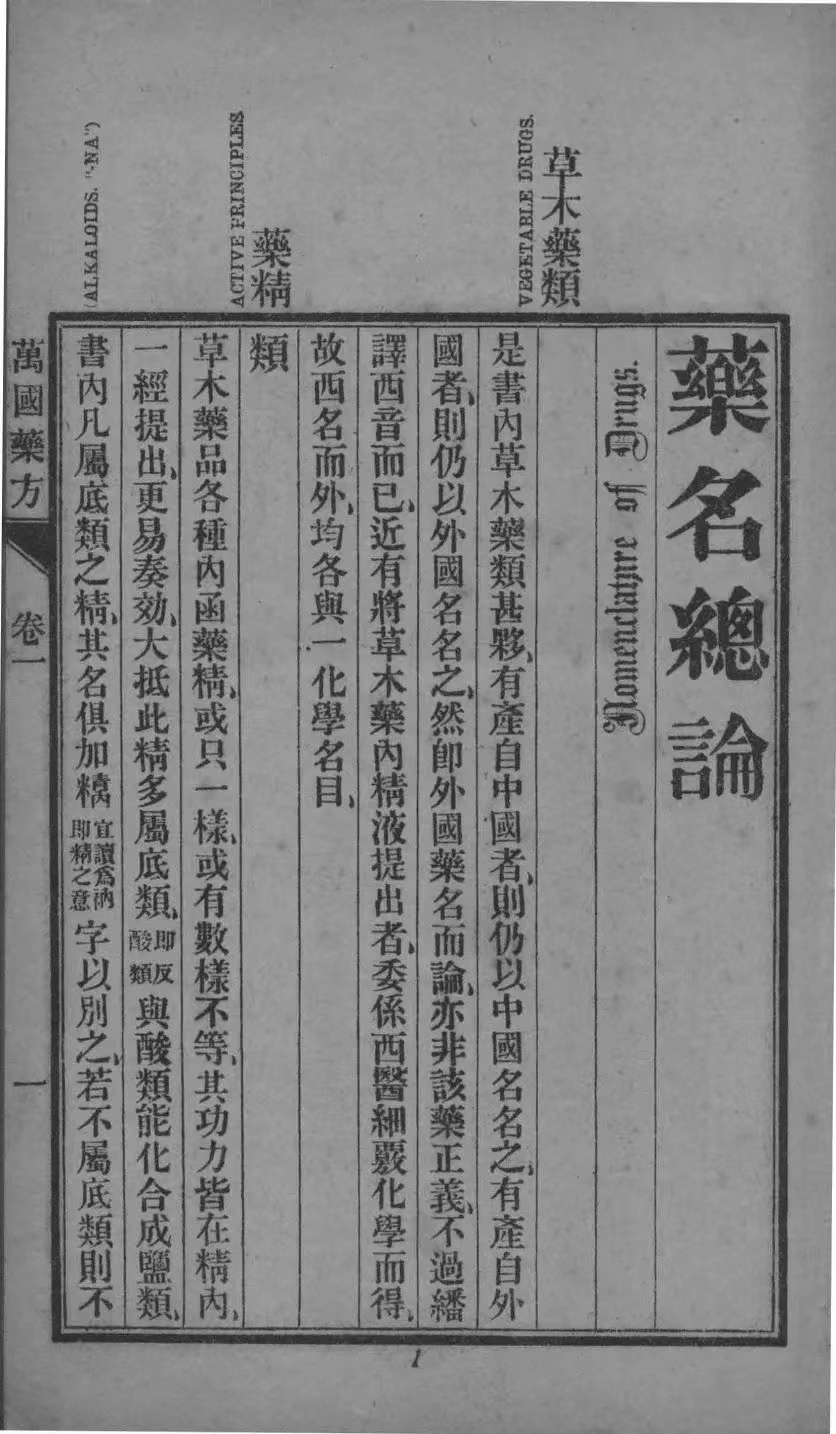 藥名總論
Nomenclature of Drugs.
草木藥類
VEGETABLE DRUGS.
是書內草木藥類甚夥、有產自中國者、則仍以中國名名之、有產自外
國者、則仍以外國名名之、然卽外國藥名而論、亦非該藥正義、不過繙
譯西音而已、近有將草木藥內精液提出者、委係西醫細覈化學而得、
故西名而外、均各與一化學名目、
藥精
ACTIVE PRINCIPLES
類
草木藥品各種內函藥精、或只一樣、或有數樣不等、其功力皆在精內、
一經提出、更易奏效、大抵此精多屬底類、卽反酸類與酸類能化合成鹽類、
(ALKALOIDS. "-NA")
書內凡屬底類之精、其名俱加宜讀爲衲卽精之意字以別之、若不屬底類則不
萬國藥方 卷一 一
1